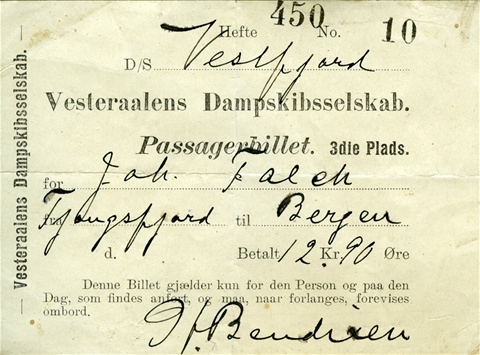 Hefte 450 No. 10
D/S Vestfjord
Vesteraalens Dampskibsselskab.
Passagerbillet. 3die Plads.
for Joh. Falch
fra Tjongsfjord til Bergen
d. Betalt 12 Kr. 90 Øre
Denne Billet gjælder kun for den Person og paa den
Dag, som findes anført, og maa, naar forlanges, forevises
ombord.
Bendixen
— Vesteraalens Dampskibsselskab. —